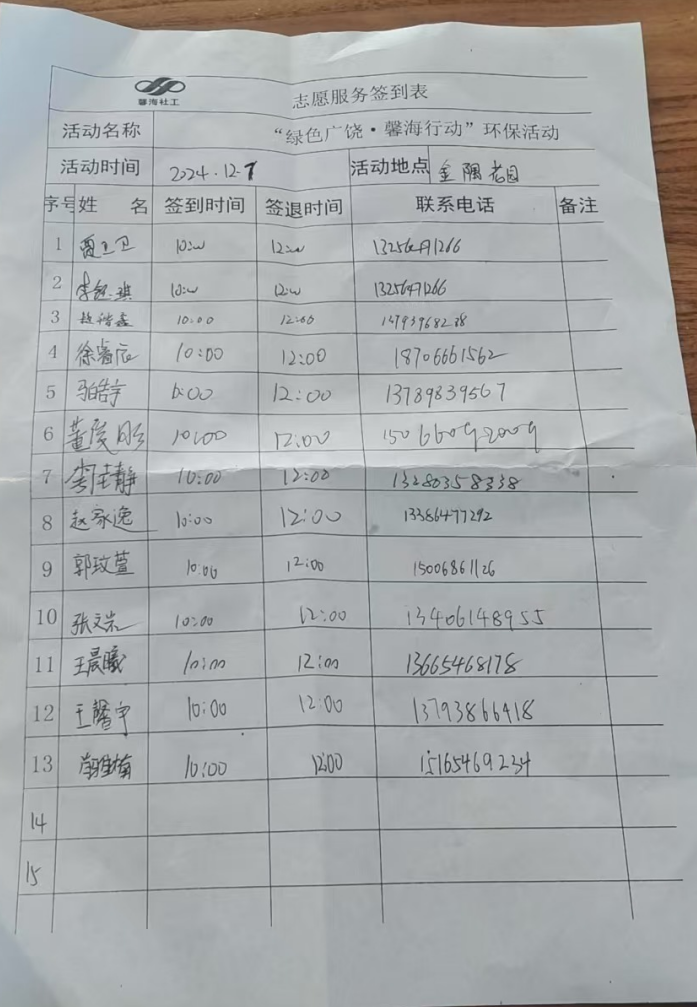 馨海社工 志愿服务签到表
活动名称 “绿色广饶·馨海行动”环保活动
活动时间 2024.12.7 活动地点 金隅 花园
序号 姓 名 签到时间 签退时间 联系电话 备注
1 10:00 12:00
2 10:00 12:00
3 10:00 12:00
4 徐睿辰 10:00 12:00 18706661562
5 马皓宇 12:00 13789839567
6 10:00 12:00 15066092009
7 李佳静 10:00 12:00 13280358338
8 赵家逸 10:00 12:00 13386477292
9 郭玟萱 10:00 12:00 15006861126
10 张文岩 10:00 12:00 13406148955
11 王晨曦 10:00 12:00 13665468178
12 王馨宇 10:00 12:00 13793866418
13 10:00 12:00 15165469234
14
15